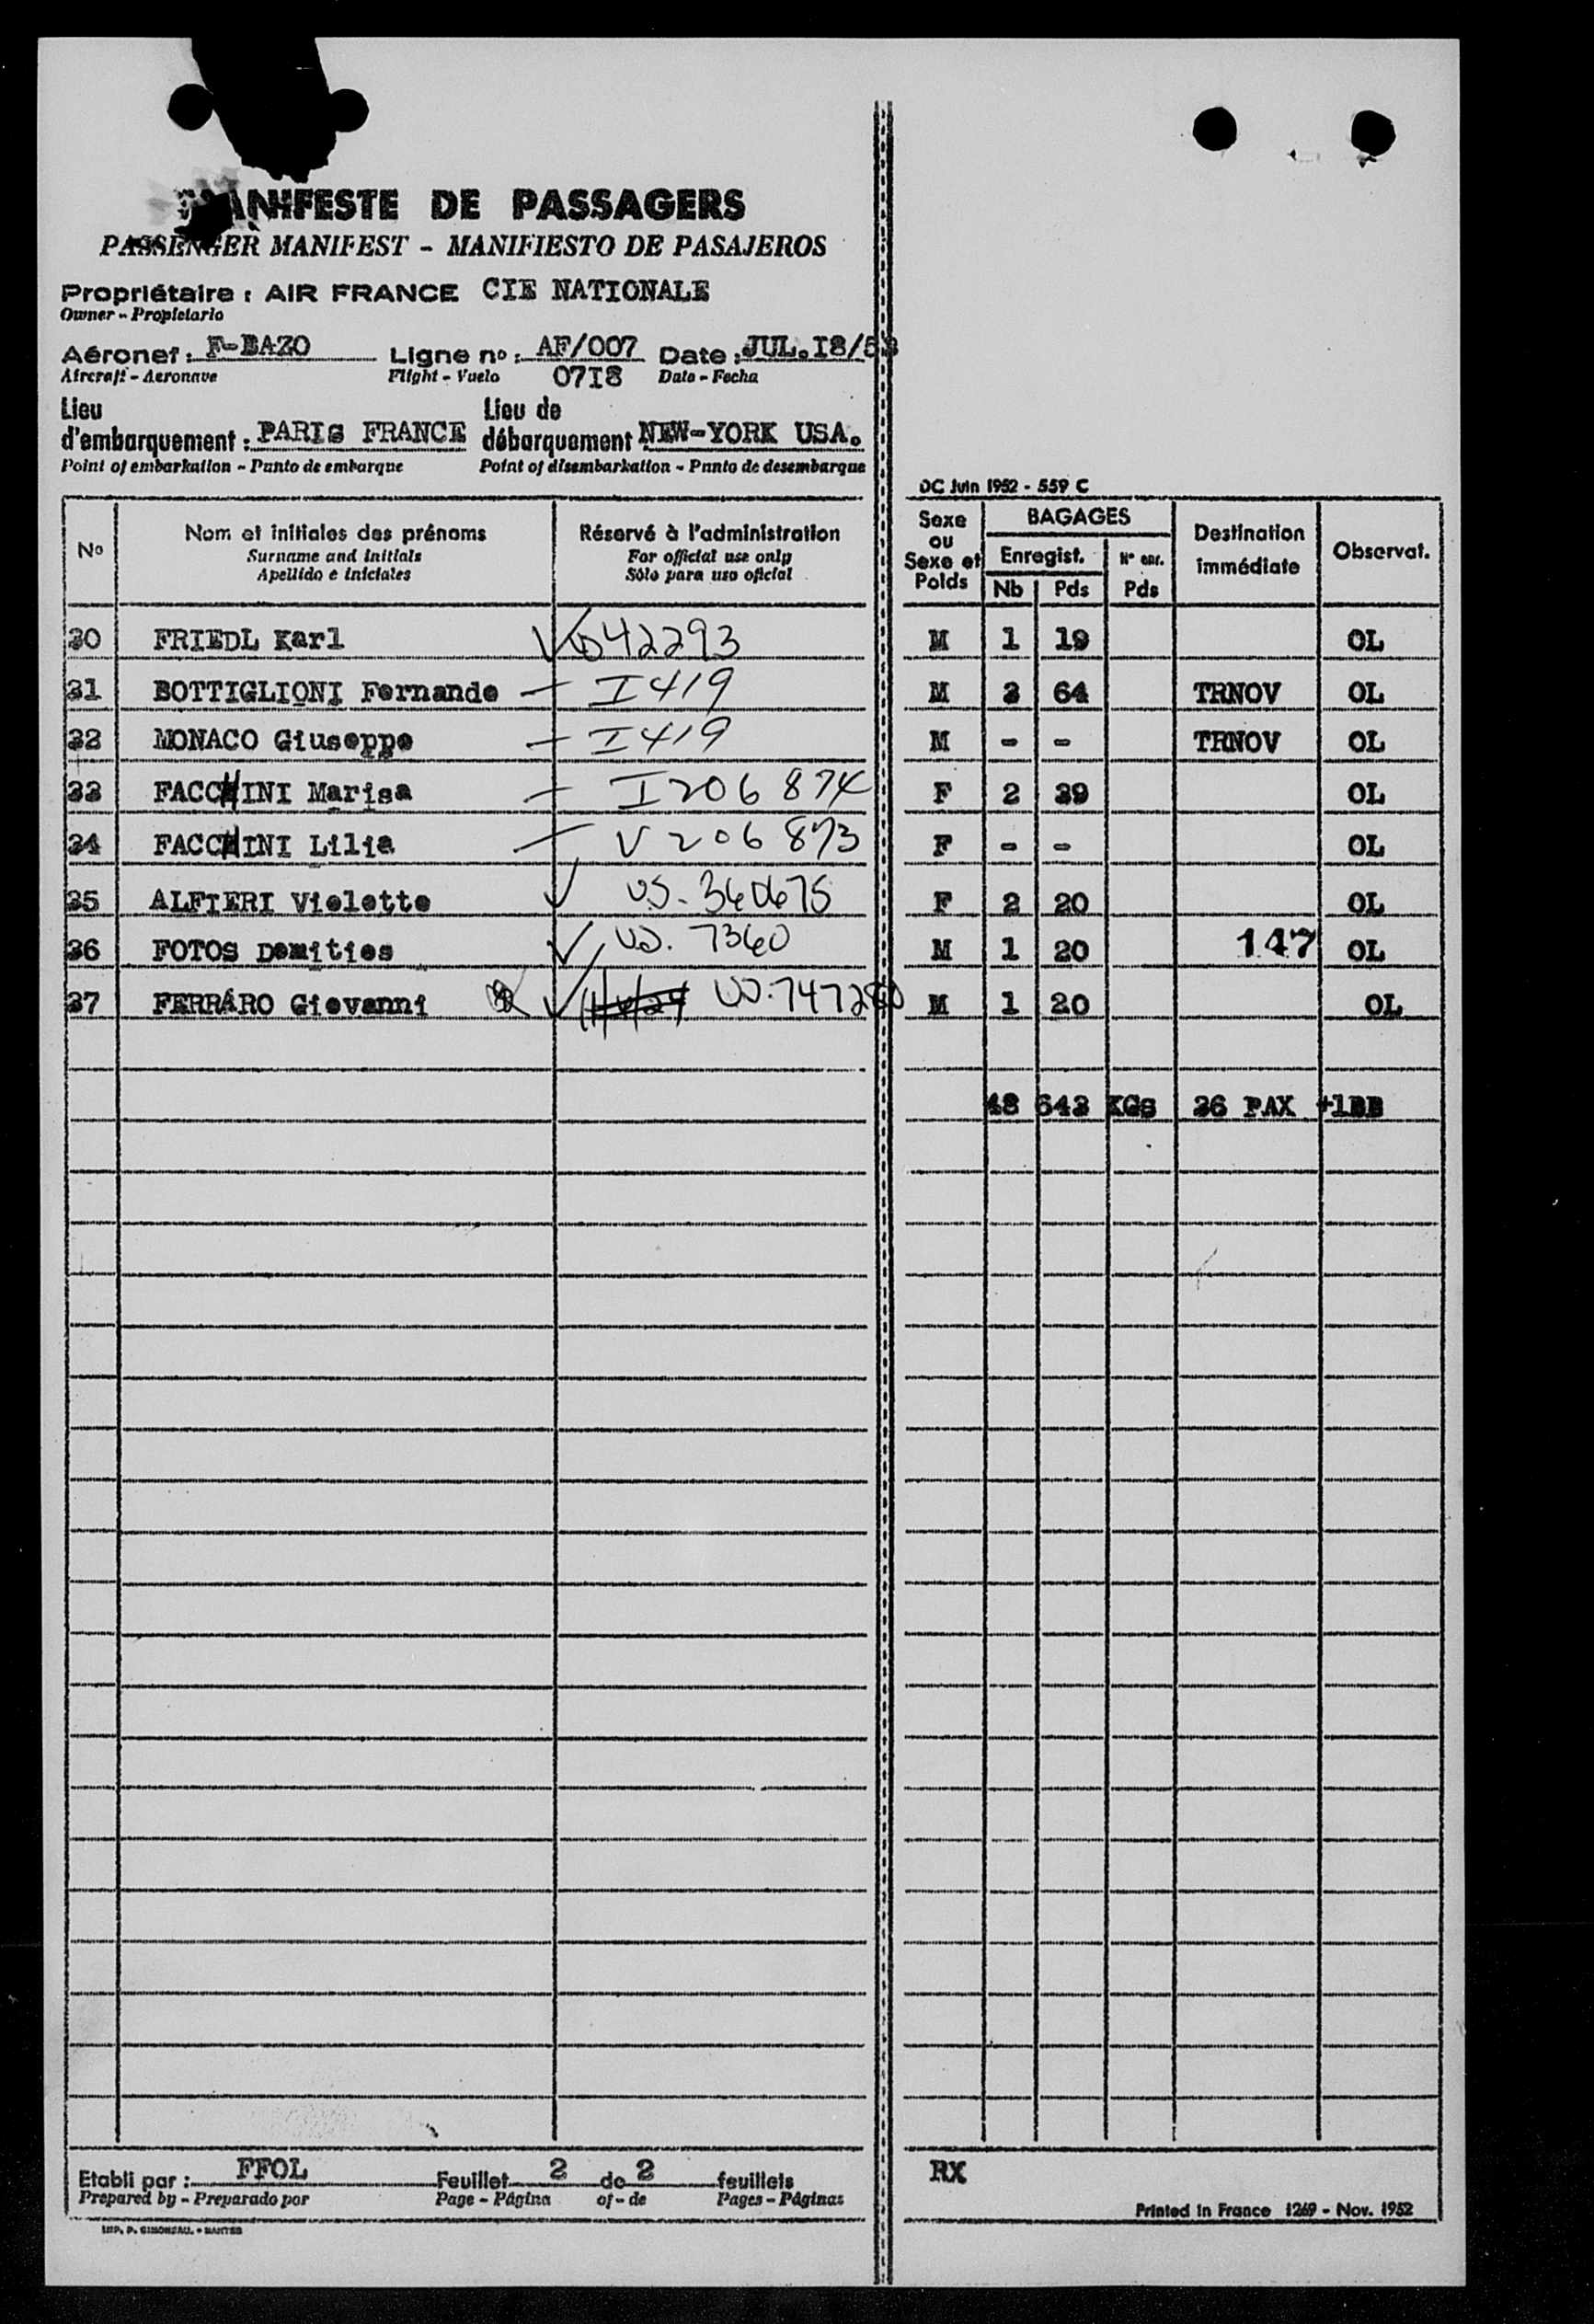 MANIFESTE DE PASSAGERS
PASSENGER MANIFEST - MANIFIESTO DE PASAJEROS
Propriétaire : AIR FRANCE CIE NATIONALE
Owner - Propietario
Aéronef : F-BAZO Ligne no : AF/007 Date : JUL.I8/53
Aircraft - Aeronave Flight - Vuelo 07I8 Date - Fecha
Lieu d'embarquement : PARIS FRANCE Lieu de débarquement NEW-YORK USA.
Point of embarkation - Punto de embarque Point of disembarkation - Punto de desembarque
DC Juin 1952 - 559 C
No Nom et initiales des prénoms Réservé à l'administration Sexe ou Sexe et Poids BAGAGES Destination immédiate Observat.
Surname and initials For official use only Enregist. No enr.
Apellido e iniciales Sólo para uso oficial Nb Pds Pds
30 FRIEDL Karl M 1 19 OL
31 BOTTIGLIONI Fernando - I419 M 3 64 TRNOV OL
32 MONACO Giuseppe - I419 M - - TRNOV OL
33 FACCHINI Marisa - I206874 F 2 39 OL
34 FACCHINI Lilia - V206873 F - - OL
35 ALFIERI Violette F 2 20 OL
36 FOTOS Demitios US. 7360 M 1 20 147 OL
37 FERRARO Giovanni M 1 20 OL
48 643 KGs 36 PAX +1BB
Etabli par : FFOL Feuillet 2 de 2 feuillets RX
Prepared by - Preparado por Page - Página of - de Pages - Páginas
Printed in France 1269 - Nov. 1952
IMP. P. GIMONEAU. - NANTES